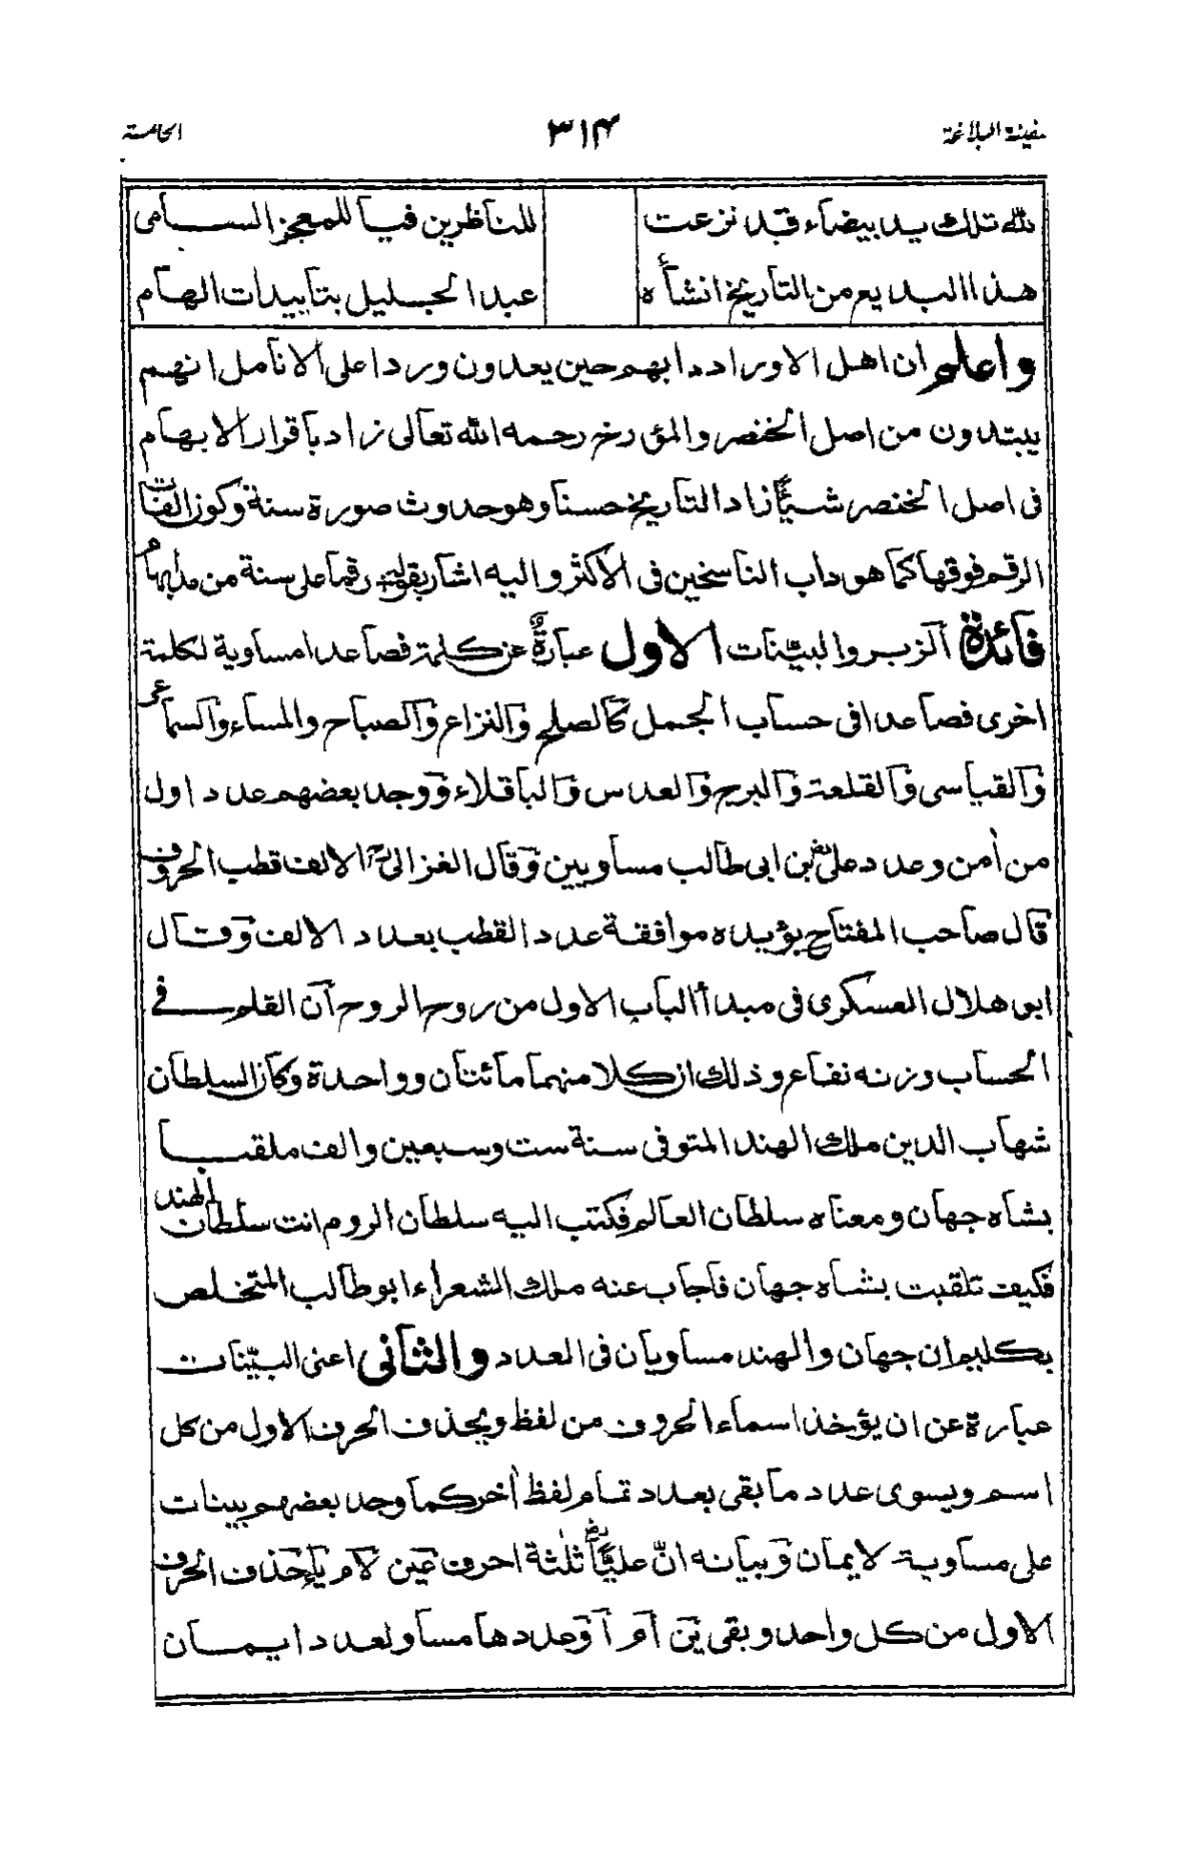 سفينة البلاغة ۳۱۴ الخامسة
لله تلك يد بيضاء قد نزعت للناظرين فيا للمعجز السامى
هذا البديع من التاريخ انشأه عبد الجليل بتاييدات الهام
واعلم ان اهل الاوراد دابهم حين يعدون وردا على الانامل انهم
يبتدون من اصل الخنصر والمؤرخ رحمه الله تعالى زاد باقرار الابهام
فى اصل الخنصر شيئا زاد التاريخ حسنا وهو حدوث صورة سنة وكون الفات
الرقم فوقها كما هو داب الناسخين فى الاكثر واليه اشار بقوله رقما على سنة من مد ابهام
فائدة الزبر والبينات الاول عبارة عن كلمة فصاعدا مساوية لكلمة
اخرى فصاعدا فى حساب الجمل كالصلح والنزاع والصباح والمساء والسماع
والقياسى والقلعة والبرج والعدس والباقلاء ووجد بعضهم عدد اول
من أمن وعدد على رض بن ابى طالب مساويين وقال الغزالى رح الالف قطب الحروف
قال صاحب المفتاح يؤيده موافقة عدد القطب بعدد الالف وقال
ابو هلال العسكرى فى مبدأ الباب الاول من روح الروح ان القلم فے
الحساب وزنه نفاع وذلك ان كلا منهما مائتان وواحدة وكان السلطان
شهاب الدين ملك الهند المتوفى سنة ست وسبعين والف ملقبا
بشاه جهان ومعناه سلطان العالم فكتب اليه سلطان الروم انت سلطان الهند
فكيف تلقبت بشاه جهان فاجاب عنه ملك الشعراء ابو طالب المتخلص
بكليم ان جهان والهند مساويان فى العدد والثانى اعنى البينات
عبارة عن ان يؤخذ اسماء الحروف من لفظ ويحذف الحرف الاول من كل
اسم ويسوى عدد ما بقى بعدد تمام لفظ أخر كما وجد بعضهم بينات
على مساوية لايمان وبيانه انّ عليّا رض ثلثة احرف عين لام يا حذف الحرف
الاول من كل واحد وبقى ين ام ا وعددها مساو لعدد ايمان